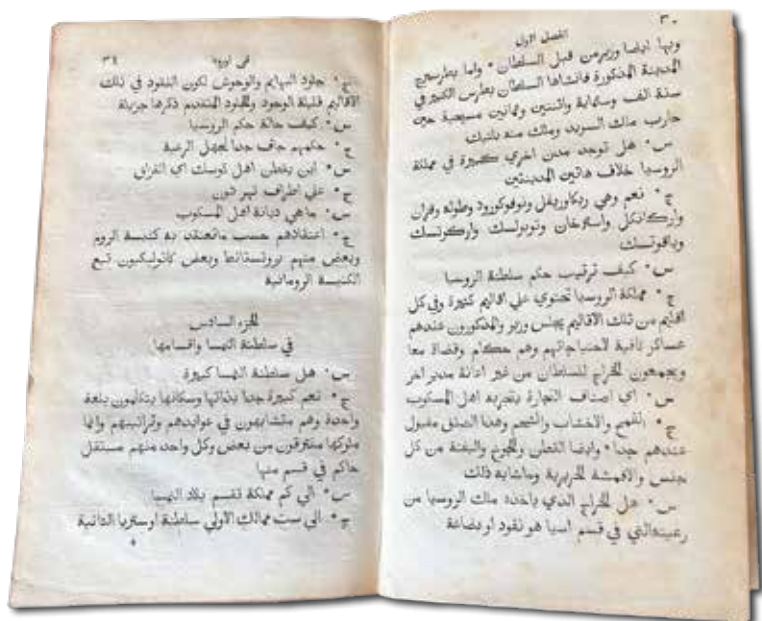 ٣٠
الفصل الاول
وبها ايضا وزير من قبل السلطان • واما بطرسبرج
المدينة المذكورة فانشاها السلطان بطرس الكبير في
سنة الف وستماية واثنتين وثمانين مسيحية حين
حارب ملك السويد وملك منه بلتيك
س • هل توجد مدن اخري كبيرة في مملكة
الروسيا خلاف هاتين المدينتين
ج • نعم وهي ونوفوكورود وطوله وقزان
واركانكل واسترخان وتوبولسك واركوتسك
وياقوتسك
س • كيف ترتيب حكم سلطنة الروسيا
ج • مملكة الروسيا تحتوي علي اقاليم كثيرة وفي كل
اقليم من تلك الاقاليم يجلس وزير والمذكورون عندهم
عساكر نافية لاحتياجاتهم وهم حكام وقضاة معا
ويجمعون الخراج للسلطان من غير اعانة مدبر اخر
س • اي اصناف التجارة يتجر به اهل المسكوب
ج • القمح والاخشاب والشحم وهذا الصنف مقبول
عندهم جدا • وايضا القطن والجوخ والبفتة من كل
جنس والاقمشة الحريرية وماشابه ذلك
س • هل الخراج الذي ياخذه ملك الروسيا من
رعيته التي في قسم اسيا هو نقود او بضاعة
في اوروبا
٣١
ج • جلود البهايم والوحوش لكون النقود في تلك
الاقاليم قليلة الوجود والجلود المتقدم ذكرها جزيلة
س • كيف حالة حكم الروسيا
ج • حكمهم جاف جدا لجهل الرعية
س • اين يقطن اهل كوسك اي القزاق
ج • علي اطراف نهر دون
س • ما هي ديانة اهل المسكوب
ج • اعتقادهم حسب ماتعتقد به كنيسة الروم
وبعض منهم بروتستانط وبعض كاتوليكيون تبع
الكنيسة الرومانية
الجزء السادس
في سلطنة النمسا واقسامها
س • هل سلطنة النمسا كبيرة
ج • نعم كبيرة جدا بذاتها وسكانها يتكلمون بلغة
واحدة وهم متشابهون في عوايدهم وتراتيبهم وانما
ملوكها متفرقون من بعض وكل واحد منهم مستقل
حاكم في قسم منها
س • الي كم مملكة تقسم بلاد النمسا
ج • الي ست ممالك الاولي سلطنة اوستريا الثانية